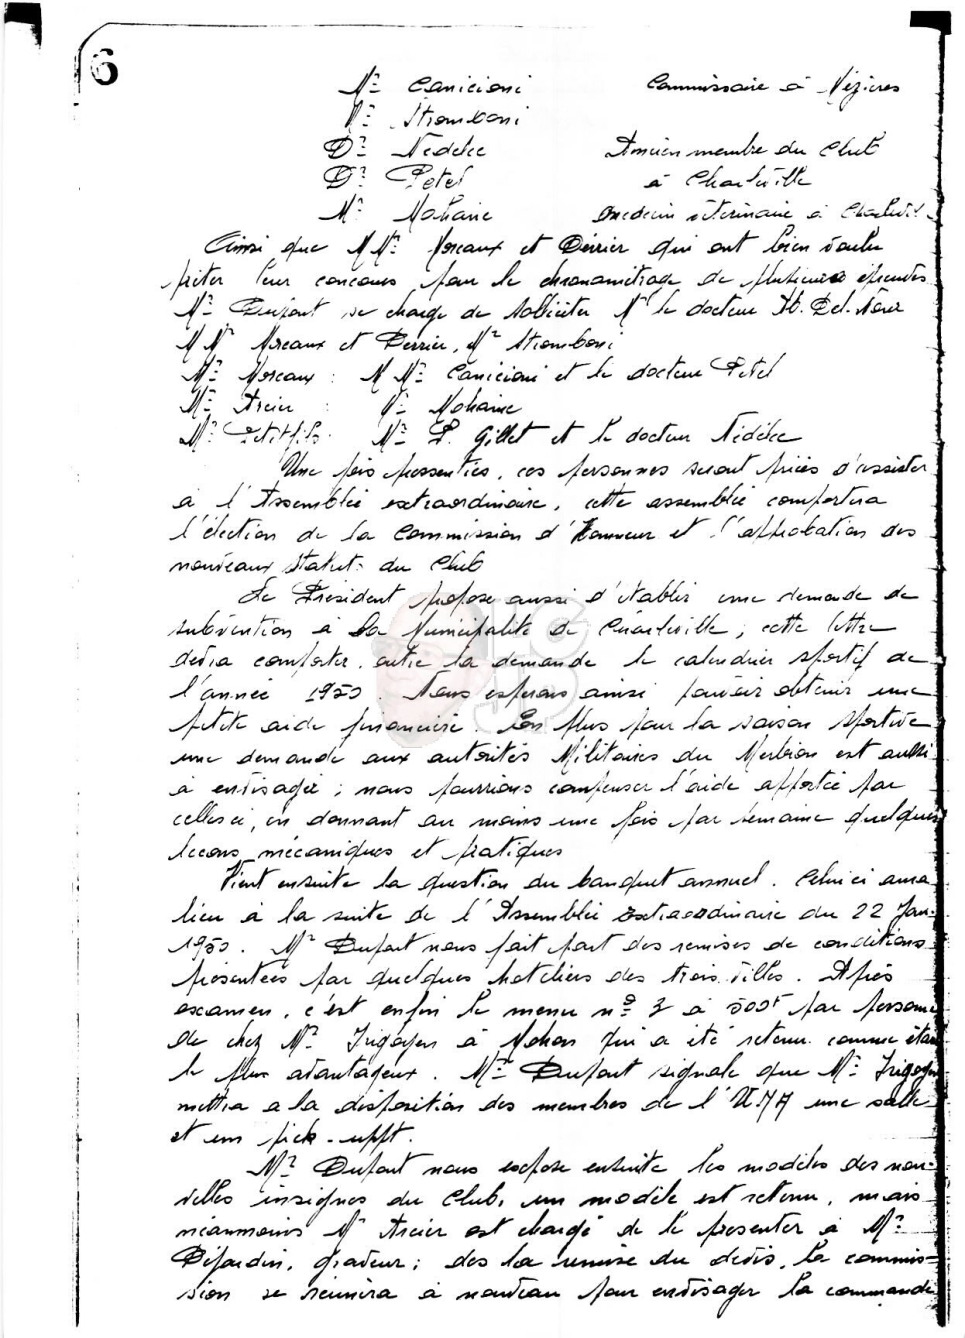 6
Mr Canicioni Commissaire à Mézières
Mr Stromboni
Dr Nédélec Ancien membre du Club
Dr Petel à Charleville
Mr Mohaine médecin véterinaire à Charlevil.
Ainsi que MMrs Moreaux et Derrier qui ont bien voulu
prêter leur concours pour le chronométrage de plusieurs épreuves
Mr Dupont se charge de solliciter Mr le docteur
MMrs Moreaux et Derrier, Mr Stromboni
Mr Moreaux : MMrs Canicioni et le docteur Petel
Mr Arcier : Mr Mohaine
Mr Petitfils. Mr P. Gillet et le docteur Nédélec
Une fois pressenties, ces personnes seront priées d'assister
à l'Assemblée extraordinaire, cette assemblée comportera
l'élection de la Commission d'Honneur et l'approbation des
nouveaux statuts du Club
Le Président propose aussi d'établir une demande de
subvention à la Municipalité de Charleville ; cette lettre
devra comporter, outre la demande le calendrier sportif de
l'année 1950. Nous esperons ainsi pouvoir obtenir une
petite aide financière. En plus pour la saison sportive
une demande aux autorités Militaires du Merbion est aussi
à envisager ; nous pourrions compenser l'aide apportée par
celles ci, en donnant au moins une fois par semaine quelques
lecons mécaniques et pratiques
Vient ensuite la question du banquet annuel. Celui ci aura
lieu à la suite de l'Assemblée extraordinaire du 22 Jan.
1950. Mr Dupont nous fait part des remises de conditions
présentées par quelques hoteliers des trois villes. Après
examen, c'est enfin le menu n° 3 à 500f par personne
de chez Mr Irigoyen à Mohon qui a été retenu comme étant
le plus avantageux. Mr Dupont signale que Mr Irigoyen
mettra a la disposition des membres de l'U.M.A une salle
et un pick-upp.
Mr Dupont nous expose ensuite les modèles des nou-
velles insignes du Club, un modèle est retenu, mais
néanmoins Mr Arcier est chargé de le presenter à Mr
Dejardin, graveur ; des la remise du devis, la commis-
sion se réunira à nouveau pour envisager la commande